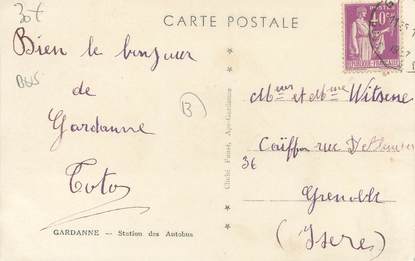 30€
CARTE POSTALE
40c
POSTES
REPUBLIQUE FRANÇAISE
Bien le bonjour
BUS
de
Gardanne
Toto
B
GARDANNE — Station des Autobus
Cliché Furet, Apt-Gardanne
Mr et Mme Witsene
Coiffeur rue
36
Grenoble
(Isère)